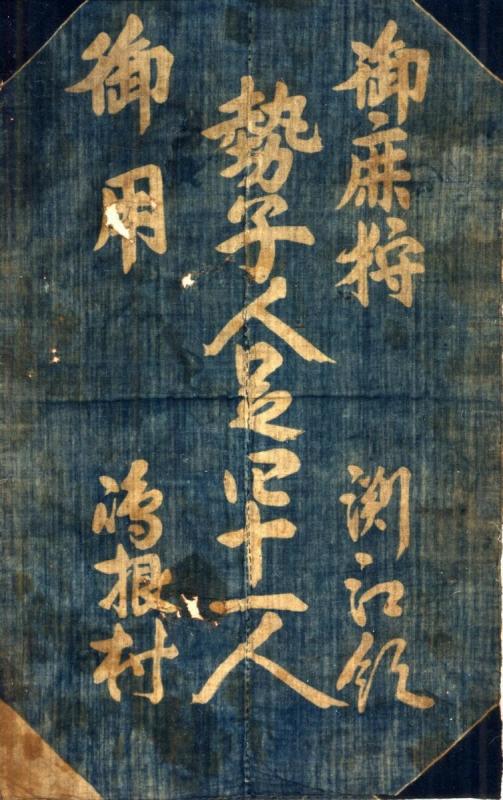 御鹿狩 渕江領
勢子人足四十一人
御用 嶋根村